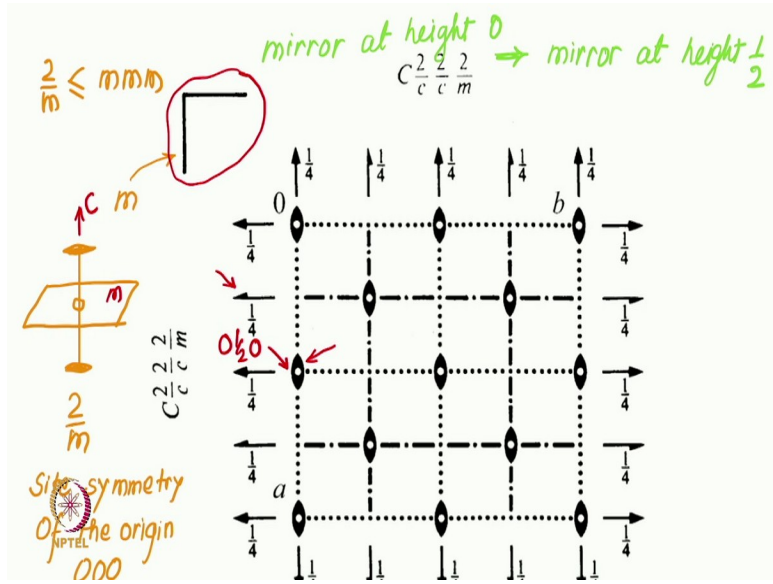 mirror at height 0 ⇒ mirror at height 1/2
C 2/c 2/c 2/m
2/m ≤ mmm
m
C
m
2/m
Site symmetry
Of the origin
000
NPTEL
C 2/c 2/c 2/m
1/4 1/4 1/4 1/4 1/4
0 b
1/4 1/4
1/4 1/4
0 1/2 0
1/4 1/4
1/4 1/4
a
1/4 1/4